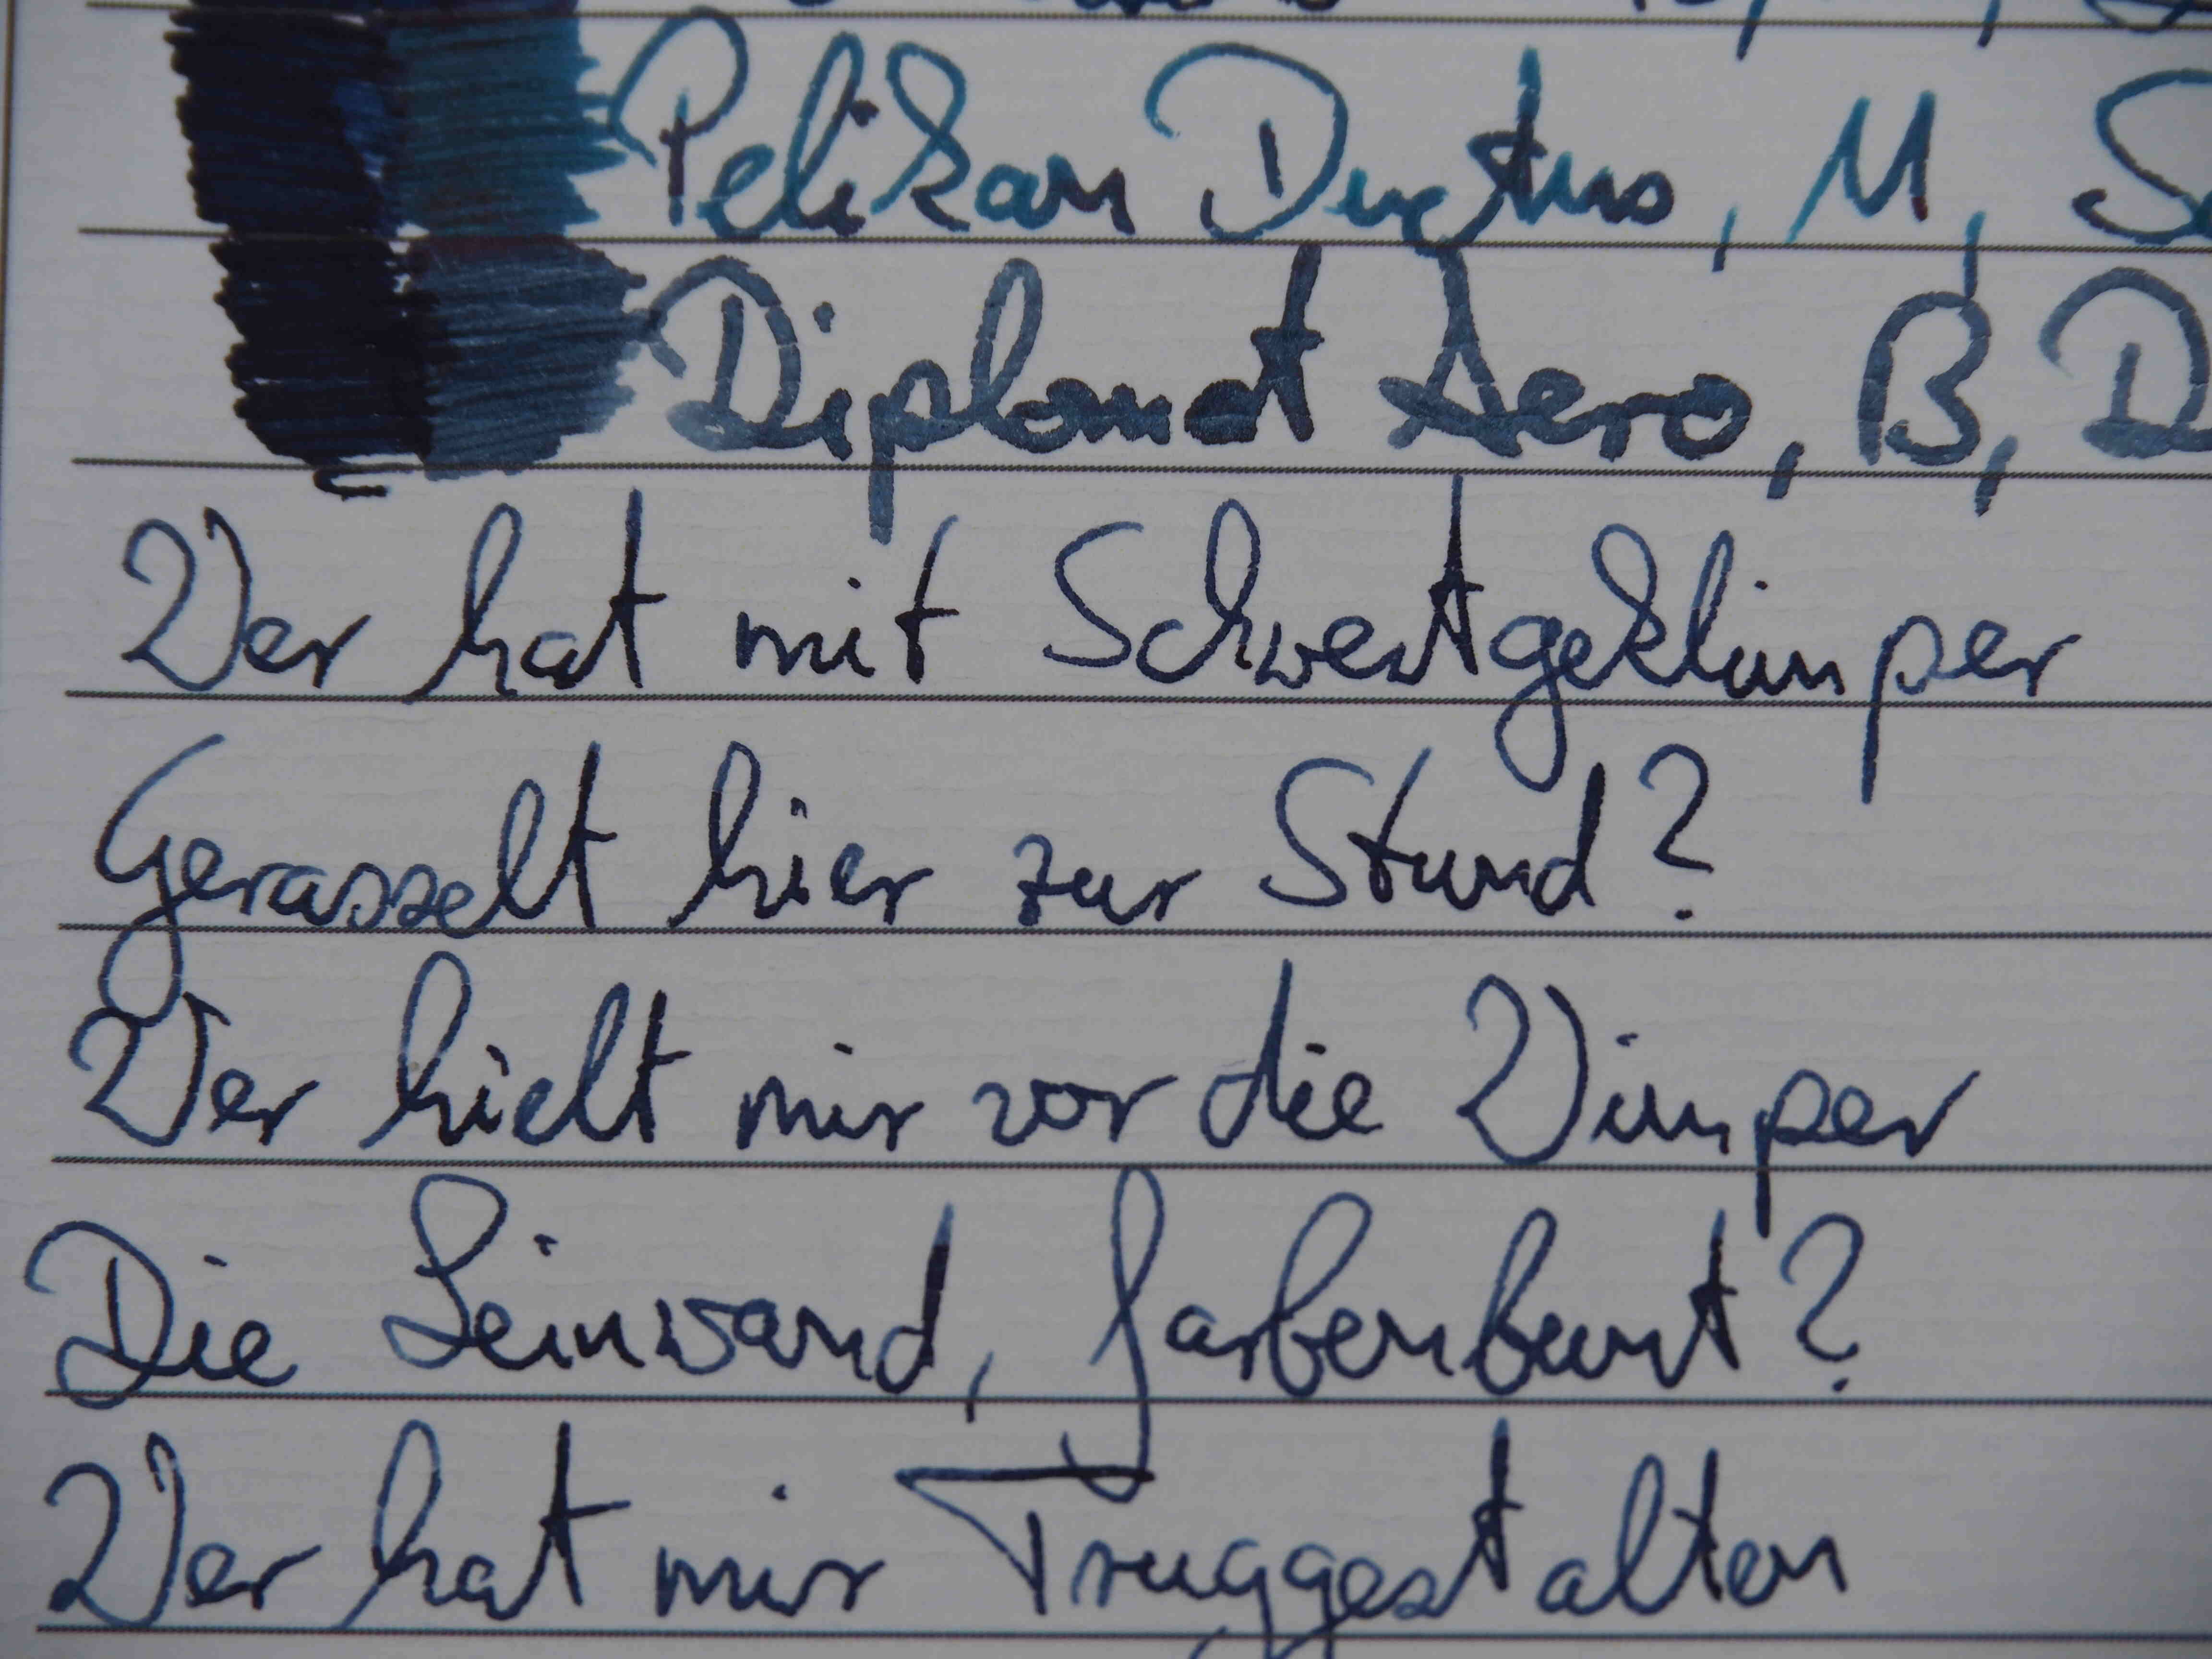 Pelikan Ductus, M,
Diplomat Aero, B, D
Wer hat mit Schwertgeklimper
Gerasselt hier zur Stund?
Wer hielt mir vor die Wimper
Die Leinwand, farbenbunt?
Wer hat mir Truggestalten